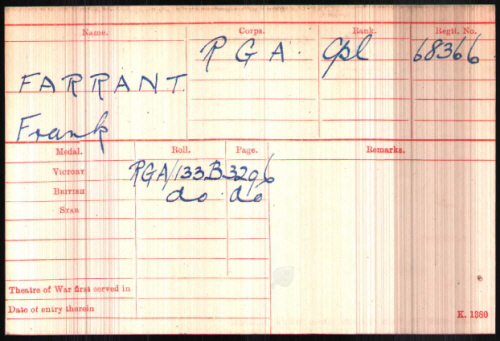 Name. Corps. Rank. Regtl. No.
R G A. Cpl 68366
FARRANT
Frank
Medal. Roll. Page. Remarks.
VICTORY RGA/133B 3296
BRITISH do do
STAR
Theatre of War first served in
Date of entry therein
K. 1380